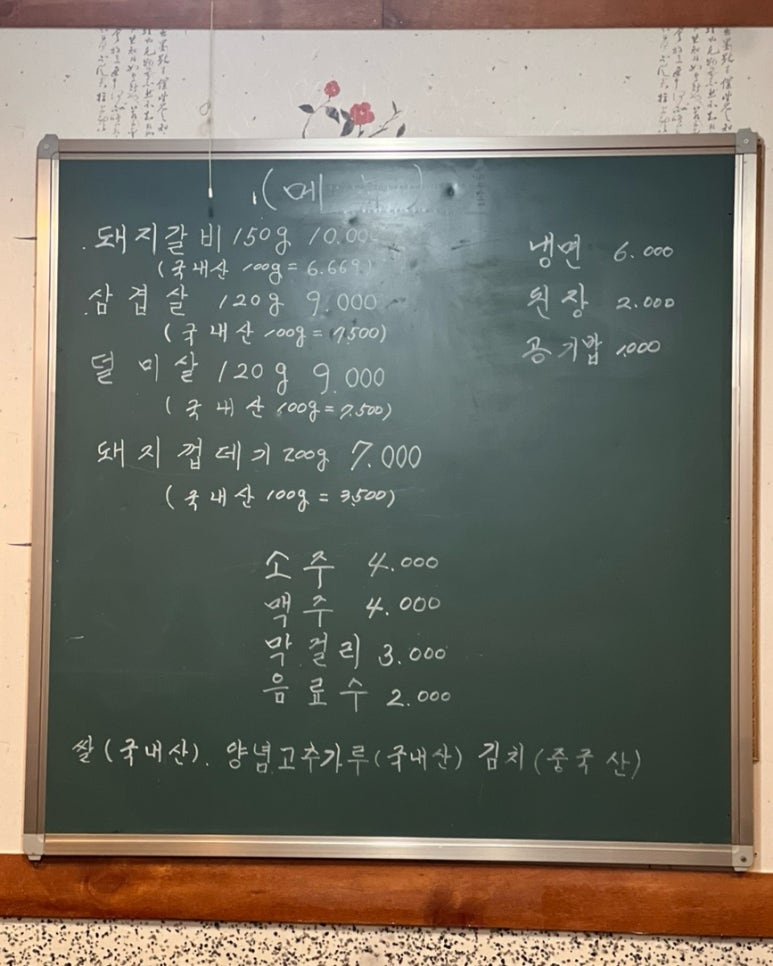 (메뉴)
돼지갈비 150g 10.000
(국내산 100g = 6.669)
삼겹살 120g 9.000
(국내산 100g = 7,500)
덜미살 120g 9.000
(국내산 100g = 7.500)
돼지껍데기 200g 7.000
(국내산 100g = 3,500)
냉면 6.000
된장 2.000
공기밥 1.000
소주 4.000
맥주 4.000
막걸리 3.000
음료수 2.000
쌀(국내산). 양념고추가루(국내산) 김치(중국산)